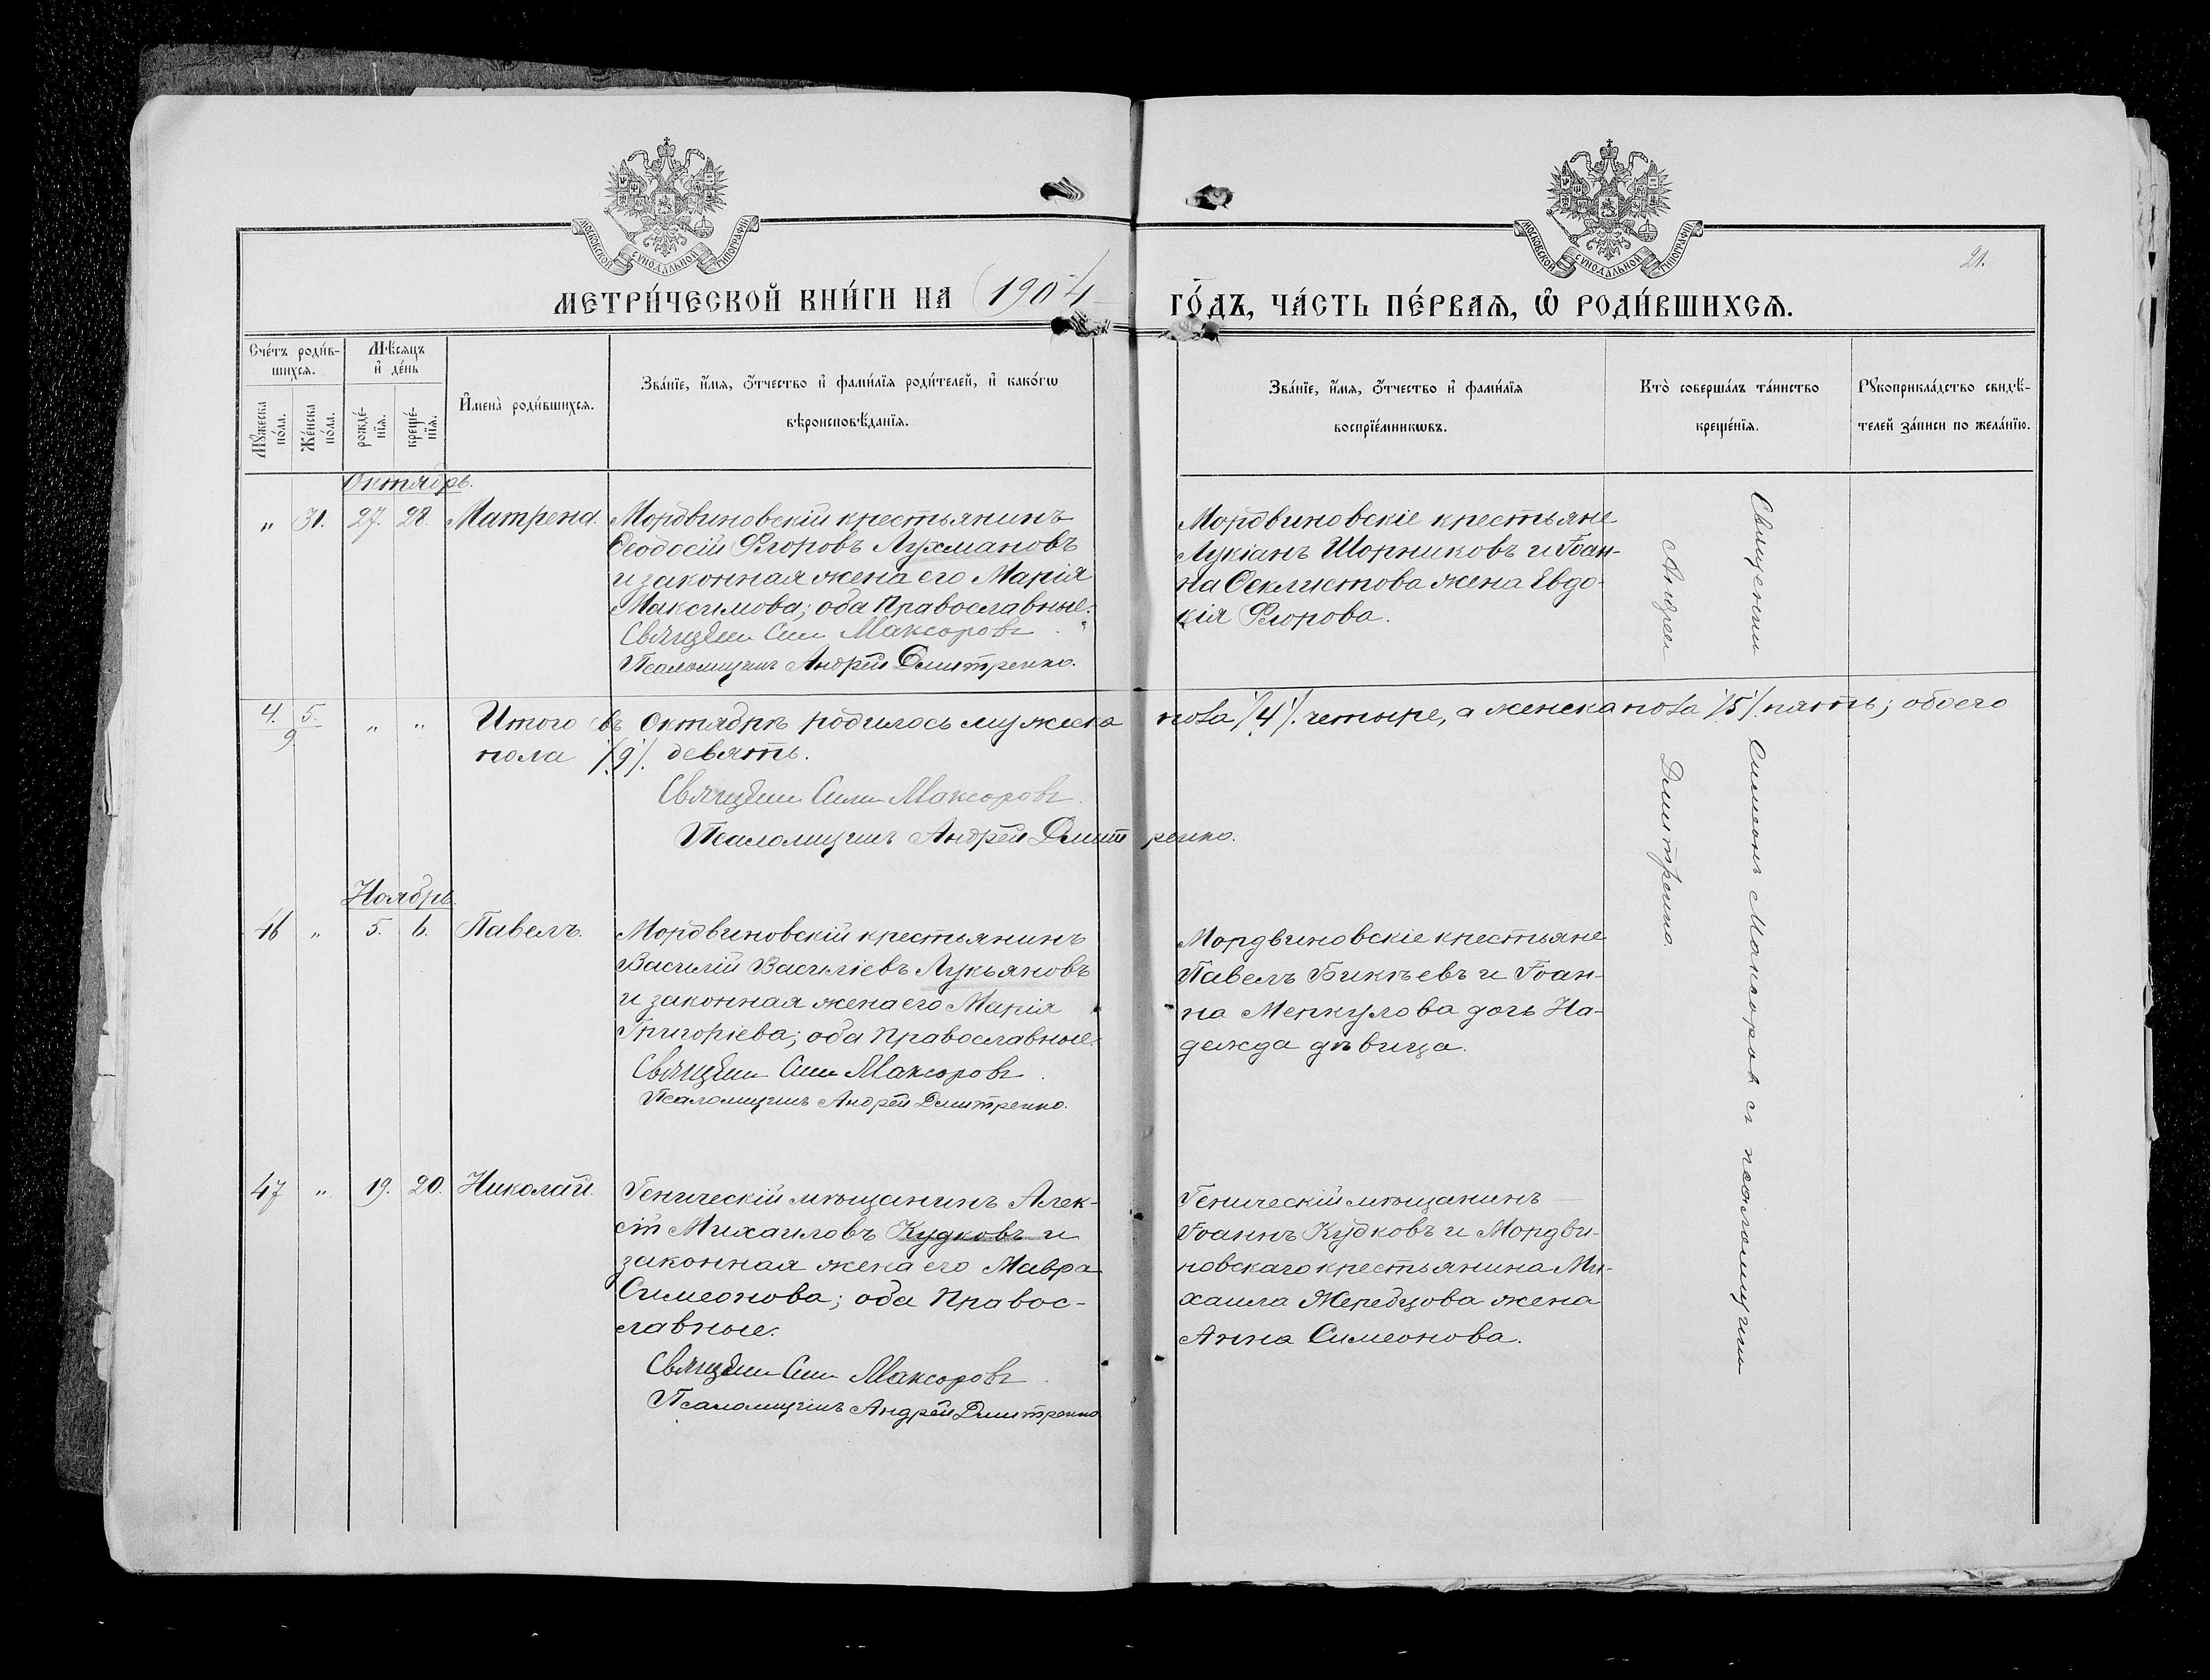 МОСКОВСКОЙ СУНОДАЛЬНОЙ ТИПОГРАФІИ
МОСКОВСКОЙ СУНОДАЛЬНОЙ ТИПОГРАФІИ
21.
МЕТРИ́ЧЕСКОЙ КНИ́ГИ НА 1904 ГО́ДЪ, ЧА́СТЬ ПЕ́РВАѦ, Ѽ РОДИ́ВШИХСѦ.
Сче́тъ роди́в-
шихсѧ.
Мѣ́сѧцъ
и҆ де́нь
Мꙋ́жеска
по́ла.
Же́нска
по́ла.
рожде́-
нїѧ.
креще́-
нїѧ.
И҆мена̀ роди́вшихсѧ.
Зва́нїе, и҆́мѧ, ѻ҆́тчество и҆ фами́лїѧ роди́телей, и҆ како́гѡ
вѣроисповѣ́данїѧ.
Зва́нїе, и҆́мѧ, ѻ҆́тчество и҆ фами́лїѧ
воспрїе́мникѡвъ.
Кто̀ соверша́лъ та́инство
креще́нїѧ.
Рꙋкоприкла́дство свидѣ́-
телей за́писи по жела́нїю.
Октябрь.
" 31. 27. 28. Матрена.
Мордвиновскій крестьянинъ
Ѳеодосій Флоровъ Лухмановъ
и законная жена его Марія
Максимова; оба Православные.
Священ. Сим. Максоровъ
Псаломщикъ Андрей Дмитренко.
Мордвиновскіе крестьяне
Лукіанъ Шорниковъ и Іоан-
на Ѳеклистова жена Евдо-
кія Флорова.
Священник Симеонъ Максоровъ съ псаломщиком
Андреем Дмитренко.
4. 5. " " Итого въ Октябрѣ родилось мужеска пола /4/. четыре, а женска пола /5/. пять; обоего
9
пола /9/. девять.
Священ. Сим. Максоровъ
Псаломщикъ Андрей Дмитренко.
Ноябрь.
46 " 5. 6. Павелъ.
Мордвиновскій крестьянинъ
Василій Василіевъ Лукьяновъ
и законная жена его Марія
Григоріева; оба Православные.
Священ. Сим. Максоровъ
Псаломщикъ Андрей Дмитренко.
Мордвиновскіе крестьяне
Павелъ Бикѣевъ и Іоан-
на Меркулова дочь На-
дежда дѣвица.
47 " 19. 20. Николай.
Геническій мѣщанинъ Алек-
сій Михаиловъ Кудковъ и
законная жена его Мавра
Симеонова; оба Правос-
лавные.
Священ. Сим. Максоровъ
Псаломщикъ Андрей Дмитренко
Геническій мѣщанинъ
Іоаннъ Кудковъ и Мордви-
новскаго крестьянина Ми-
хаила Жеребцова жена
Анна Симеонова.